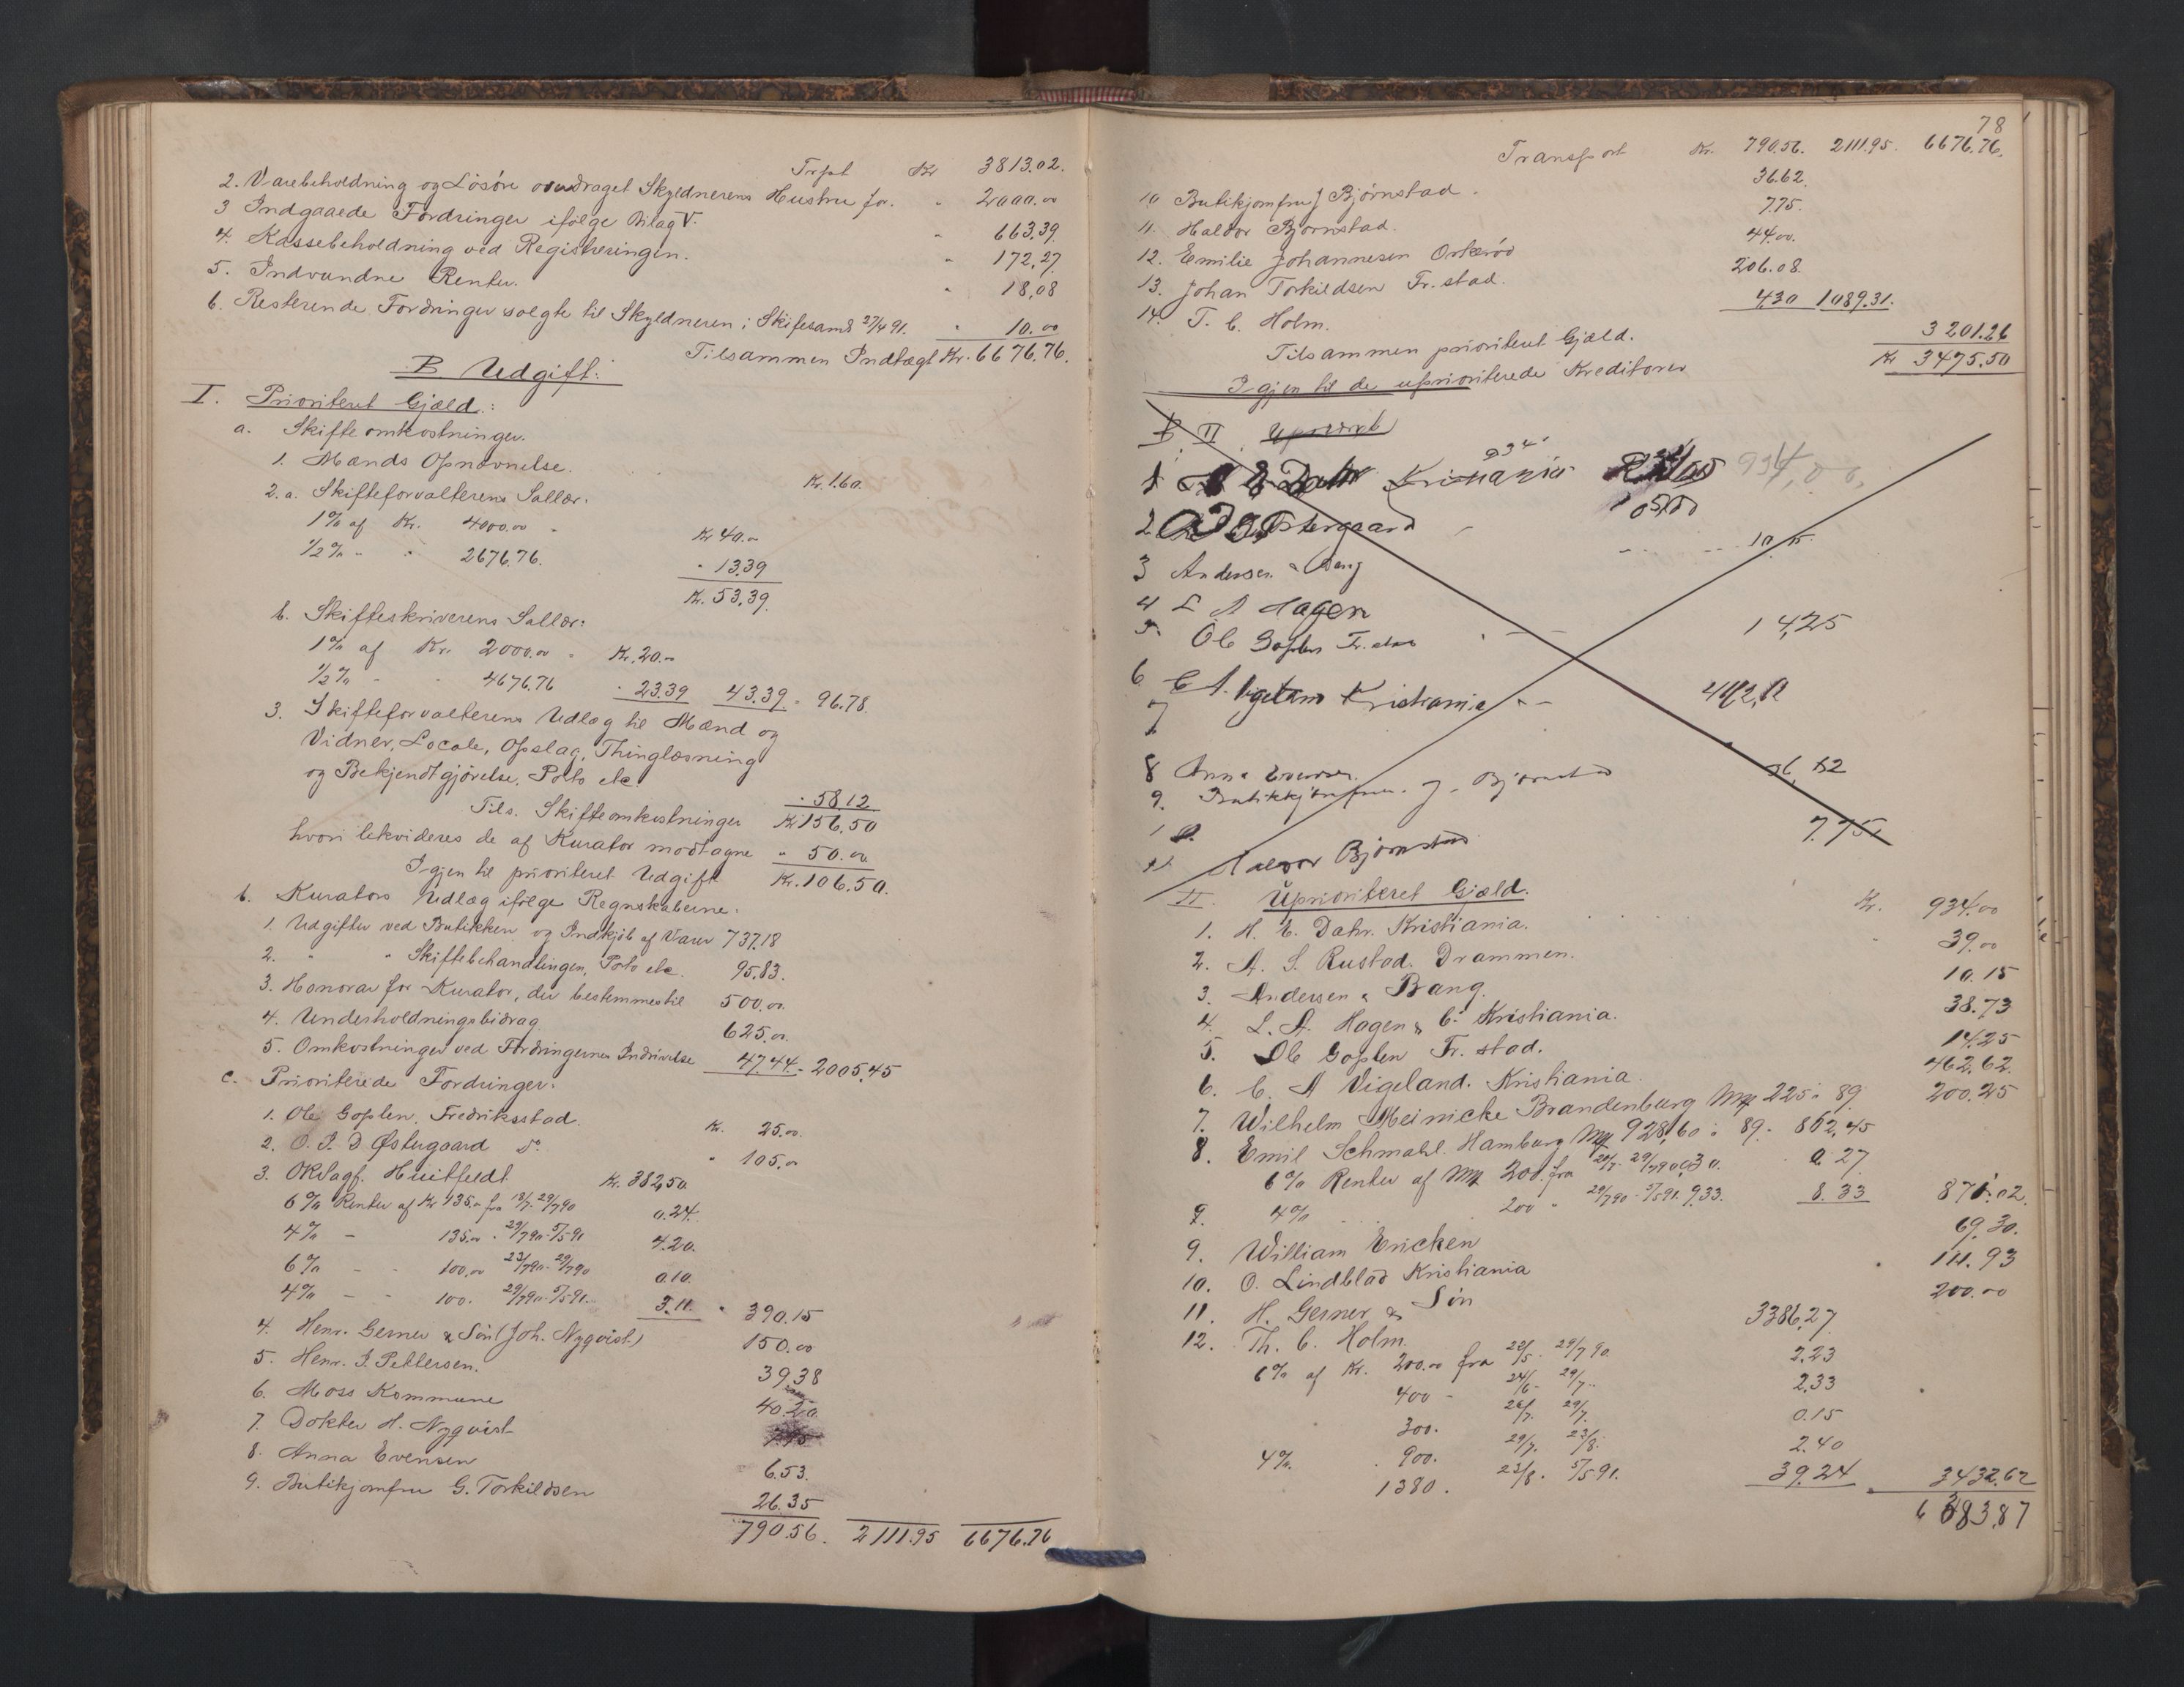 Trpt Kr 3813.02.
2. Varebeholdning og Lösöre overdraget Skyldnerens Hustru for. " 2000.00
3 Indgaaede Fordringer ifölge Bilag V. " 663.39
4. Kassebeholdning ved Registreringen. " 172,27
5. Indvundne Renter. " 18,08
6. Resterende Fordringer solgte til Skyldneren i Skiftesaml 27/4 91. " 10.00
Tilsammen Indtægt Kr. 6676,76.
B Udgift:
I. Prioriteret Gjæld.:
a. Skifteomkostninger.
1. Mænds Opnævnelse. Kr. 1.60.
2. a. Skifteforvalterens Sallær:
1% af Kr. 4000.00 Kr 40.00
1/2% " " 2676.76. " 13.39
Kr. 53,39.
b. Skifteskriverens Sallær:
1% af Kr. 2000.00 Kr. 20.00
1/2% - " 4676.76 " 23.39 43.39 " 96.78.
3. Skifteforvalterens Udlæg til Mænd og
Vidner, Locale, Opslag, Thinglæsning
og Bekjendtgjörelse, Porto etc " 58.12
Tils. Skifteomkostninger Kr 156,50
hvori likvideres de af Kurator modtagne " 50.00
Igjen til prioriteret Udgift Kr. 106.50.
b. Kurators Udlæg ifölge Regnskaberne:
1. Udgifter ved Butikken og Indkjöb af Varer 737.18
2. " " Skiftebehandlingen, Porto etc. 95.83.
3. Honorar for Kurator, der bestemmes til 500.00.
4. Underholdningsbidrag 625.00.
5. Omkostninger ved Fordringernes Indrivelse 47.44. - 2005,45
c. Prioriterede Fordringer.
1. Ole Goplen, Fredriksstad. Kr. 25.00.
2. O. P. D Østergaard do " 105.00
3. ORSagf. Huitfeldt Kr. 382.50
6% Renter af Kr 135.00 fra 18/7-29/7 90 0.24.
4% - 135.00 " 29/7 90-5/5 91 4.20.
6% - - 100.00 23/7 90-29/7 90 0.10.
4% - - 100. 29/7 90-5/5 91. 3.11. " 390.15
4. Henr. Gerner & Sön (Joh. Nyqvist) 150.00
5. Henr. J. Pettersen. 39.38
6. Moss Kommune 40.20.
7. Dokter H. Nyqvist
8. Anna Evensen 6.53.
9. Butikjomfru G. Torkildsen 26.35
790.56. 2111.95 6676.76
78
Transport Kr. 790.56. 2111.95. 6676.76.
10 Butikjomfru J Bjørnstad. 36.62.
11. Haldor Bjørnstad. 7.75.
12. Emilie Johannesen Orkeröd 44.00.
13. Johan Torkildsen Fr.stad. 206.08.
14. T. C. Holm. 4.30 1089.31.
Tilsammen prioriteret Gjæld. 3201.26
Igjen til de uprioriterede Kreditorer Kr 3475,50
II Upriorit
1 Dahr Kristiania 934,00,
2. Østergaard 105,00
3 Andersen & Bang 10,15.
4 L A Hagen
5. Ole Goplen Fr.stad 14,25
6. C A. Vigeland Kristiania
7
8 Anna Evensen.
9. Butikkjomfru. J. Bjørnstad
11 Haldor Bjørnstad 7.75.
II. Uprioriteret Gjæld.
1. H. E. Dahr. Kristiania. Kr. 934.00
2. A. S. Rustad. Drammen. 39.00
3. Andersen & Bang. 10.15
4. L. A. Hagen & Co Kristiania. 38.73
5. Ole Goplen Fr.stad. 14.25
6. C. A Vigeland. Kristiania 462.62.
7. Wilhelm Meinicke Brandenburg Mk 225 à 89 200.25
8. Emil Schmahl. Hamburg Mk 928,60 à 89. 862,45
6% Renter af Mk 200. fra 29/7 90 0,30. 0.27
9. 4% 200 " 29/7 90 - 5/5 91. 9.33. 8.33 871.02.
9. William Ericken 69.30.
10. O. Lindblad Kristiania 111.93
11. H. Gerner & Sön 200.00
12. Th. C. Holm 3386,27
6% af Kr. 200.00 fra 29/7 90. 2.23
400 - 24/6 - 29/7 2.33
300. 29/7. 0.15
4%. 900. 29/7. 23/8. 2.40
1380. 23/8. 5/5 91. 39.24 3432.62
6383,87